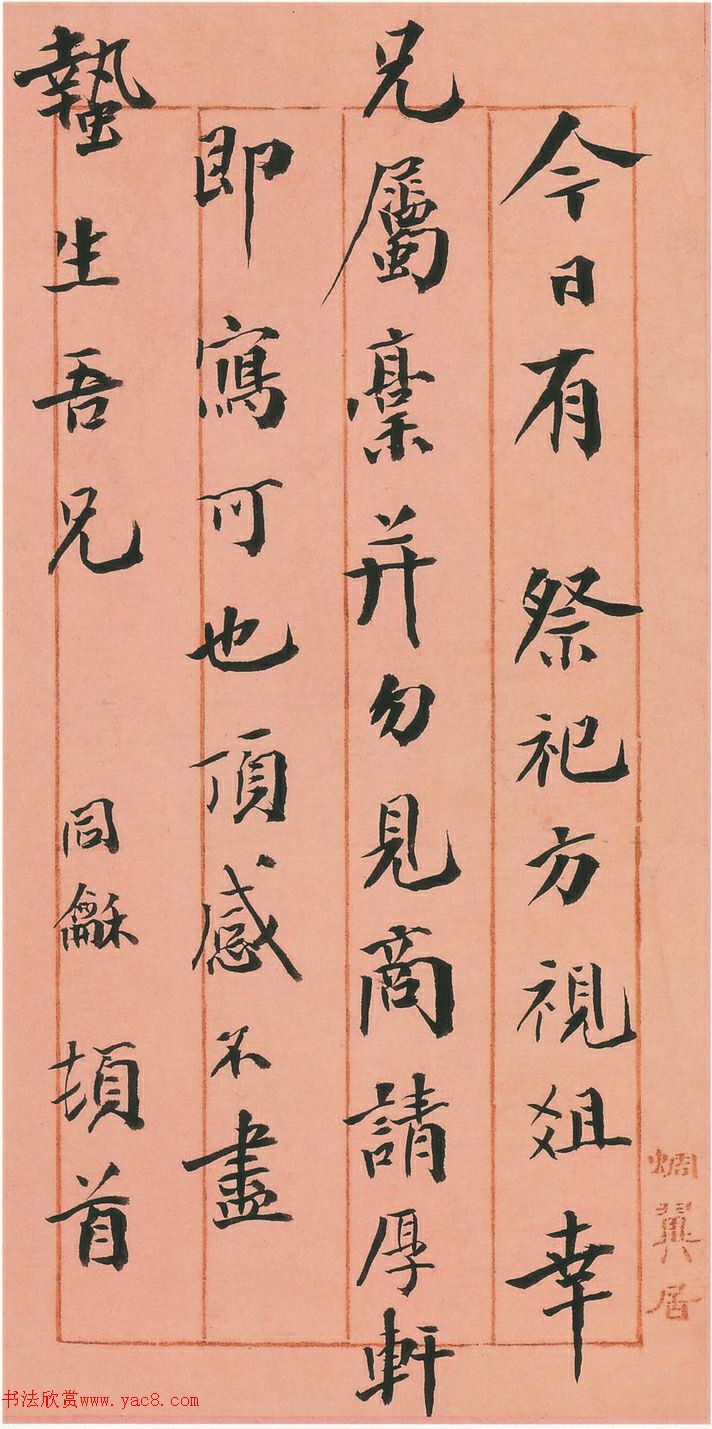 今日有 祭祀方視俎幸
兄屬稾并勿見商請厚軒
即寫可也頂感不盡
蟄生吾兄 同龢 頓首
蜩翼居
书法欣赏www.yac8.com